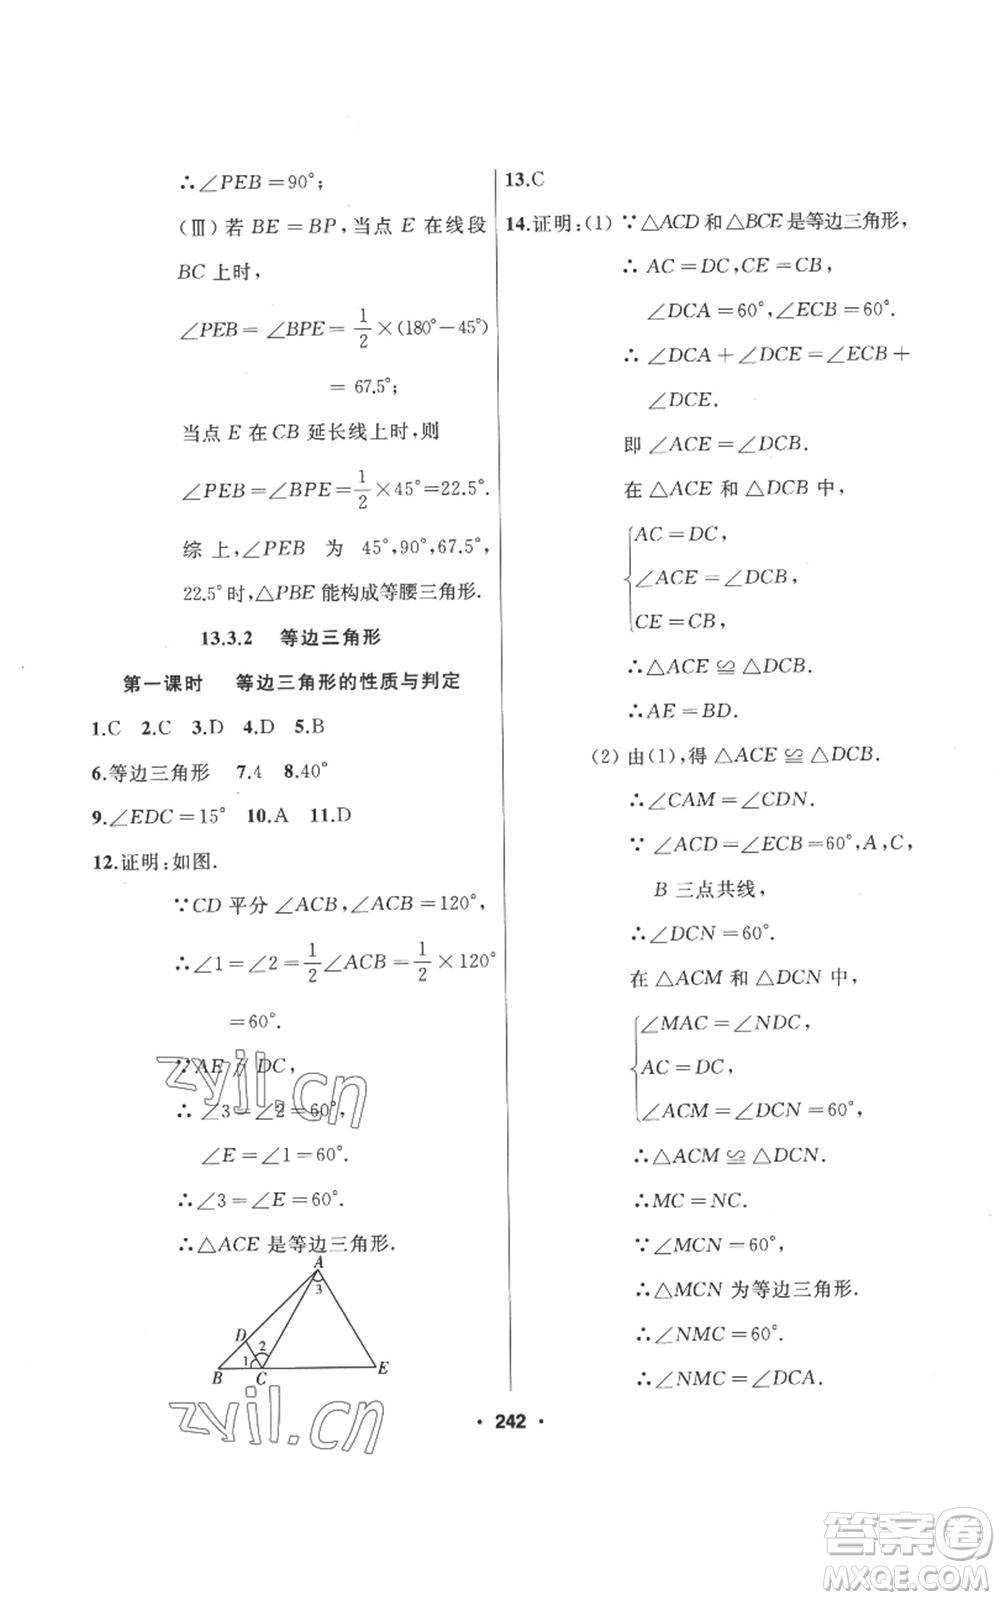 ∴∠PEB＝90°；
(Ⅲ) 若 BE＝BP，当点 E 在线段
BC 上时，
∠PEB＝∠BPE＝1/2×(180°－45°)
＝67.5°；
当点 E 在 CB 延长线上时，则
∠PEB＝∠BPE＝1/2×45°＝22.5°.
综上，∠PEB 为 45°，90°，67.5°，
22.5°时，△PBE 能构成等腰三角形.
13.3.2 等边三角形
第一课时 等边三角形的性质与判定
1.C 2.C 3.D 4.D 5.B
6.等边三角形 7.4 8.40°
9.∠EDC＝15° 10.A 11.D
12.证明：如图.
∵CD 平分 ∠ACB，∠ACB＝120°，
∴∠1＝∠2＝1/2∠ACB＝1/2×120°
＝60°.
∵AE∥DC，
∴∠3＝∠2＝60°，
∠E＝∠1＝60°.
∴∠3＝∠E＝60°.
∴△ACE 是等边三角形.
A
3
D
2
1
B C E
13.C
14.证明：(1) ∵△ACD 和 △BCE 是等边三角形，
∴AC＝DC，CE＝CB，
∠DCA＝60°，∠ECB＝60°.
∴∠DCA＋∠DCE＝∠ECB＋
∠DCE.
即 ∠ACE＝∠DCB.
在 △ACE 和 △DCB 中，
AC＝DC，
∠ACE＝∠DCB，
CE＝CB，
∴△ACE≌△DCB.
∴AE＝BD.
(2) 由(1)，得 △ACE≌△DCB.
∴∠CAM＝∠CDN.
∵∠ACD＝∠ECB＝60°，A，C，
B 三点共线，
∴∠DCN＝60°.
在 △ACM 和 △DCN 中，
∠MAC＝∠NDC，
AC＝DC，
∠ACM＝∠DCN＝60°，
∴△ACM≌△DCN.
∴MC＝NC.
∵∠MCN＝60°，
∴△MCN 为等边三角形.
∴∠NMC＝60°.
∴∠NMC＝∠DCA.
· 242 ·
zyjl.cn
zyjl.cn
答案卷
MXQE.COM